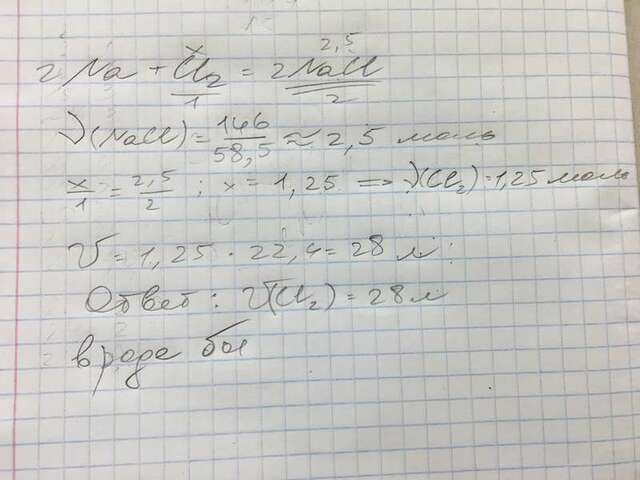 x 2,5
2Na + Cl₂ = 2NaCl
1 2
ν(NaCl) = 146/58,5 ≈ 2,5 моль
x/1 = 2,5/2 ; x = 1,25 => ν(Cl₂) = 1,25 моль
V = 1,25 · 22,4 = 28 л.
Ответ: V(Cl₂) = 28 л
вроде бы